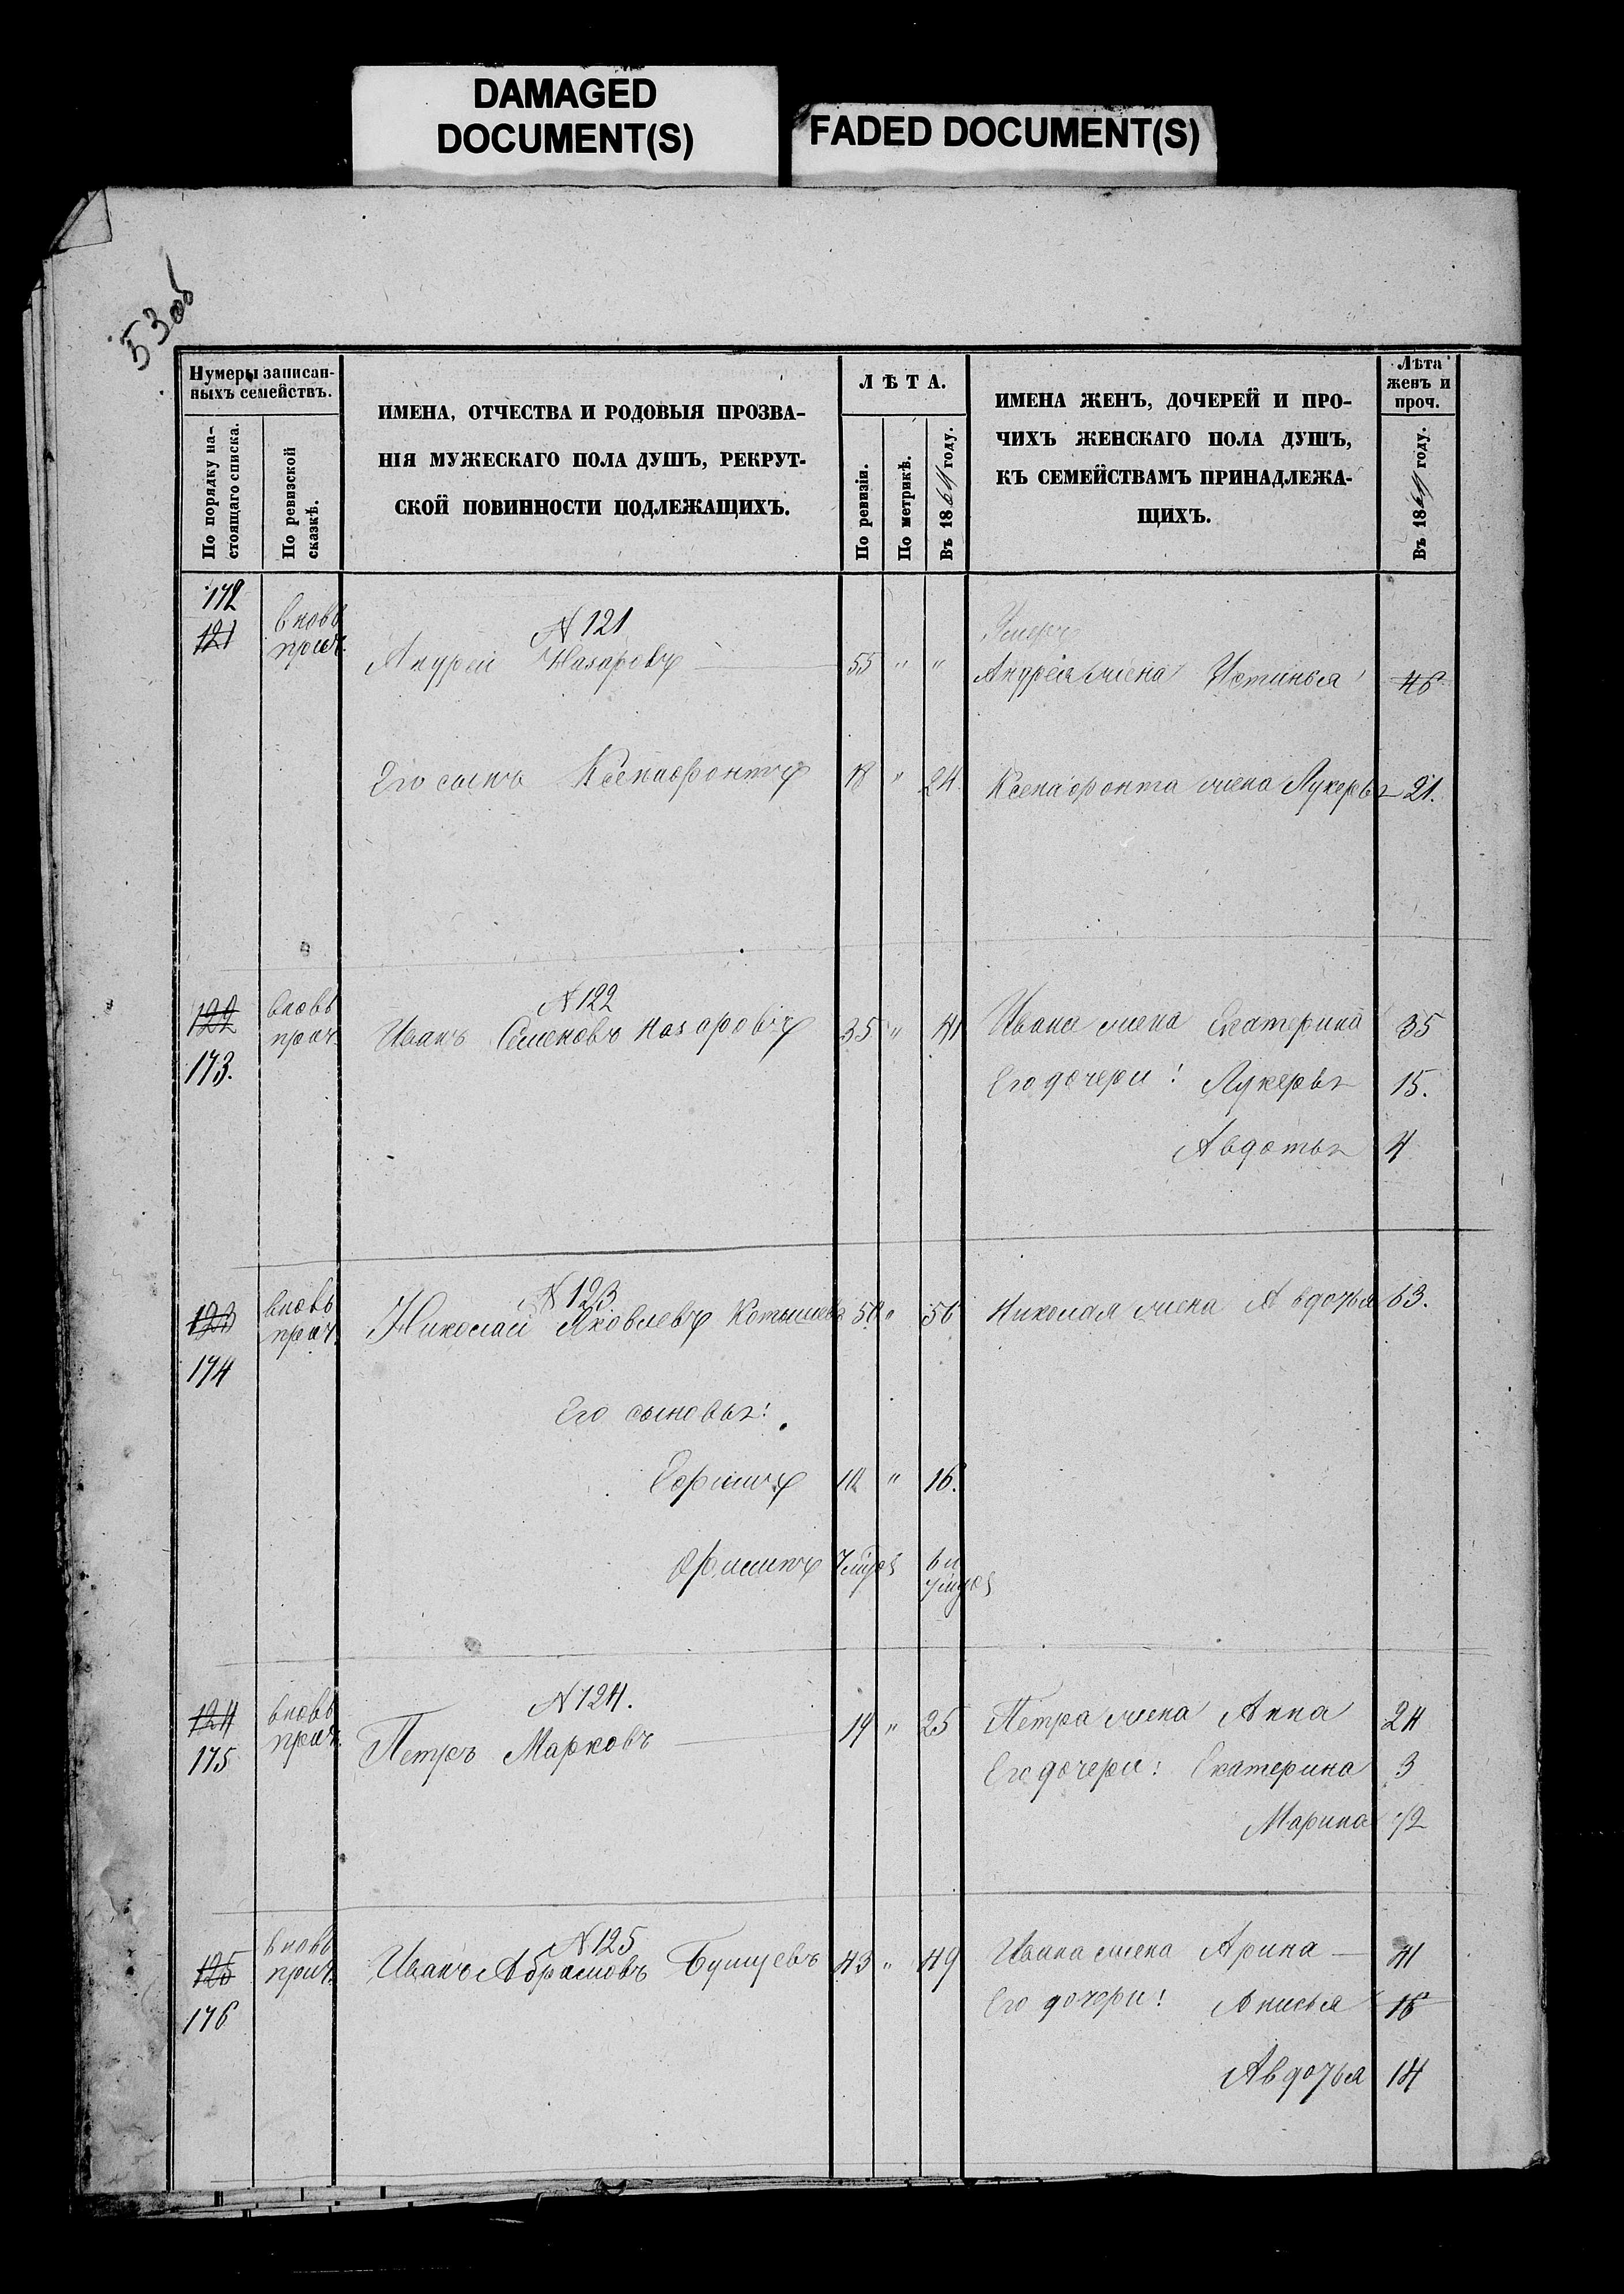 DAMAGED
DOCUMENT(S)
FADED DOCUMENT(S)
53 об
Нумеры записан-
ныхъ семействъ.
По порядку на-
стоящаго списка.
По ревизской
сказкѣ.
ИМЕНА, ОТЧЕСТВА И РОДОВЫЯ ПРОЗВА-
НІЯ МУЖЕСКАГО ПОЛА ДУШЪ, РЕКРУТ-
СКОЙ ПОВИННОСТИ ПОДЛЕЖАЩИХЪ.
ЛѢТА.
По ревизіи.
По метрикѣ.
Въ 1864 году.
ИМЕНА ЖЕНЪ, ДОЧЕРЕЙ И ПРО-
ЧИХЪ ЖЕНСКАГО ПОЛА ДУШЪ,
КЪ СЕМЕЙСТВАМЪ ПРИНАДЛЕЖА-
ЩИХЪ.
Лѣта
женъ и
проч.
Въ 1864 году.
172
121
вновь
прич.
№ 121
Андрей Назаровъ 55 " "
Умеръ
Андрея жена Устинья 46
Его сынъ Ксенофонтъ 18 " 24
Ксенофонта жена Лукерья 21.
122
173.
вновь
прич.
№ 122
Иванъ Семеновъ Назаровъ 35 " 41
Ивана жена Екатерина 35
Его дочери: Лукерья 15.
Авдотья 4
123
174
вновь
прич.
№ 123.
Николай Яковлевъ 50 " 56
Николая жена Авдотья 53.
Его сыновья:
Ефимъ 10 " 16.
Филипъ 7 мѣс 6 и
7 мѣс
124
175
вновь
прич.
№ 124.
Петръ Марковъ 19 " 25
Петра жена Анна 24
Его дочери: Екатерина 3
Марина 1/2
125
176
вновь
прич.
№ 125
Иванъ Абрамовъ 43 " 49
Ивана жена Арина 41
Его дочери: Анисья 16
Авдотья 14